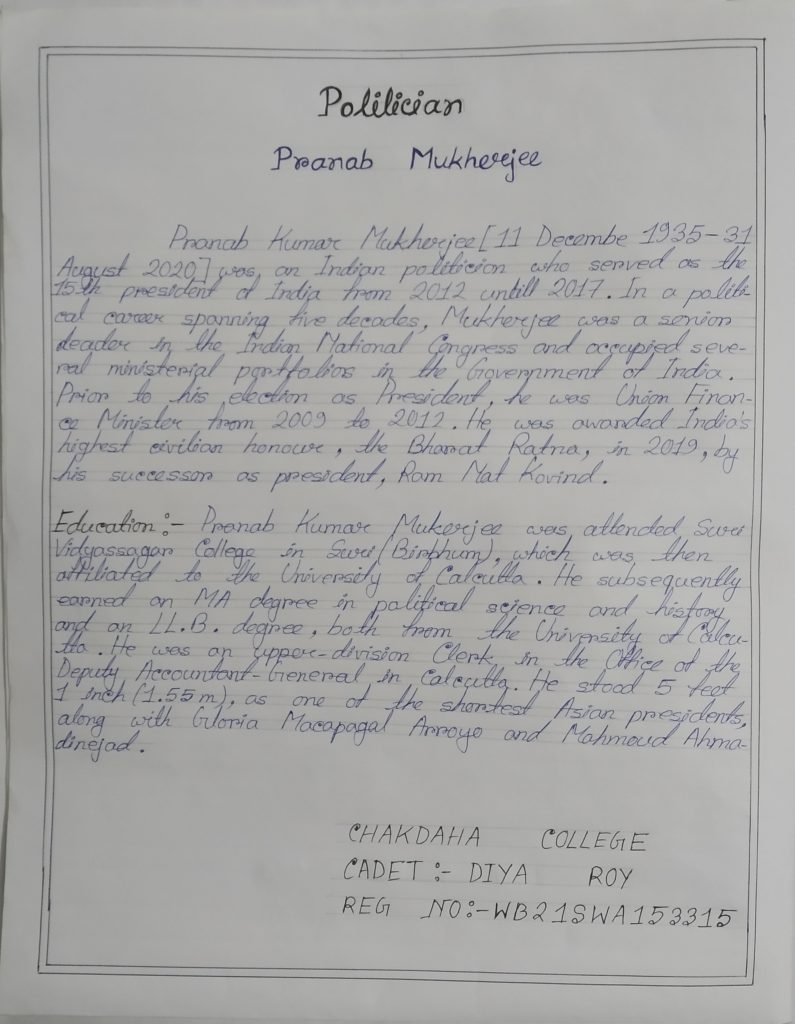 Politician
Pranab Mukherjee
Pranab Kumar Mukherjee [11 Decembe 1935-31
August 2020] was an Indian politicion who served as the
15th president of India from 2012 untill 2017. In a politi-
cal career spanning five decades, Mukherjee was a senior
leader in the Indian National Congress and occupied seve-
ral ministerial portfolios in the Government of India.
Prior to his election as President, he was Union Finan-
ce Minister from 2009 to 2012. He was awarded India's
highest civilian honour, the Bharat Ratna, in 2019, by
his successor as president, Ram Nat Kovind.
Education :- Pranab Kumar Mukerjee was attended Suri
Vidyassagar College in Suri (Birbhum), which was then
affiliated to the University of Calcutta. He subsequently
earned an MA degree in political science and history
and an LL.B. degree, both from the University of Calcu-
tta. He was an upper-division Clerk in the Office of the
Deputy Accountant-General in Calcutta. He stood 5 feet
1 inch (1.55 m), as one of the shortest Asian presidents,
along with Gloria Macapagal Arroyo and Mahmoud Ahma-
dinejad.
CHAKDAHA COLLEGE
CADET :- DIYA ROY
REG NO:-WB21SWA153315